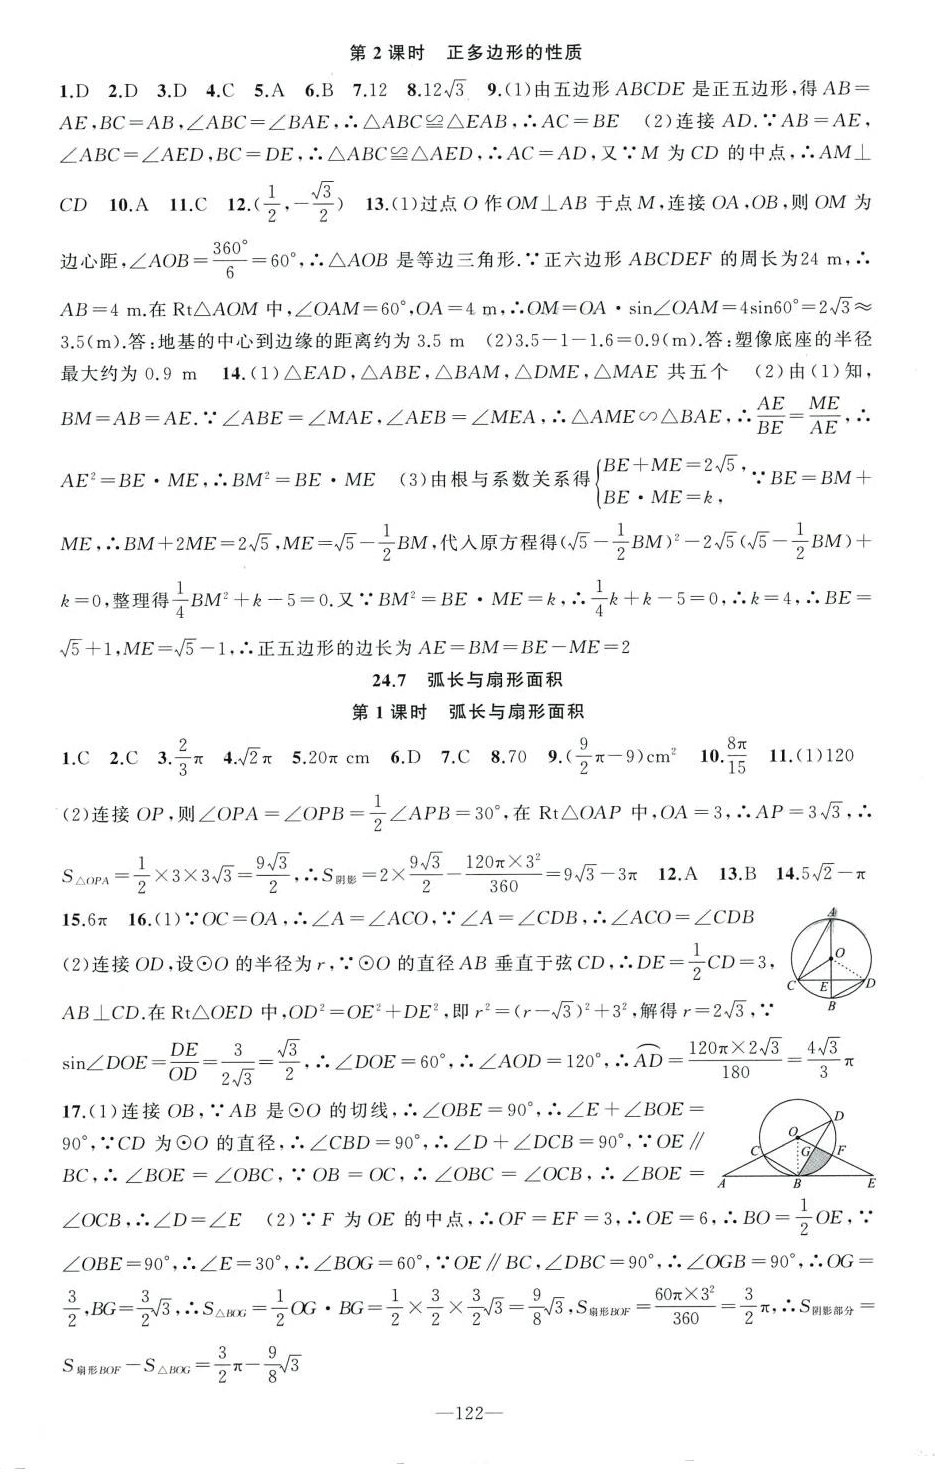 第 2 课时　正多边形的性质
1.D 2.D 3.D 4.C 5.A 6.B 7.12 8.12√3 9.(1)由五边形 ABCDE 是正五边形,得 AB=
AE,BC=AB,∠ABC=∠BAE,∴△ABC≌△EAB,∴AC=BE (2)连接 AD.∵AB=AE,
∠ABC=∠AED,BC=DE,∴△ABC≌△AED,∴AC=AD,又∵M 为 CD 的中点,∴AM⊥
CD 10.A 11.C 12.(1/2,-√3/2) 13.(1)过点 O 作 OM⊥AB 于点 M,连接 OA,OB,则 OM 为
边心距,∠AOB=360°/6=60°,∴△AOB 是等边三角形.∵正六边形 ABCDEF 的周长为24 m,∴
AB=4 m.在 Rt△AOM 中,∠OAM=60°,OA=4 m,∴OM=OA·sin∠OAM=4sin60°=2√3≈
3.5(m).答:地基的中心到边缘的距离约为 3.5 m (2)3.5-1-1.6=0.9(m).答:塑像底座的半径
最大约为 0.9 m 14.(1)△EAD,△ABE,△BAM,△DME,△MAE 共五个 (2)由(1)知,
BM=AB=AE.∵∠ABE=∠MAE,∠AEB=∠MEA,∴△AME∽△BAE,∴AE/BE=ME/AE,∴
AE²=BE·ME,∴BM²=BE·ME (3)由根与系数关系得{BE+ME=2√5, BE·ME=k, ∵BE=BM+
ME,∴BM+2ME=2√5,ME=√5-1/2BM,代入原方程得(√5-1/2BM)²-2√5(√5-1/2BM)+
k=0,整理得1/4BM²+k-5=0.又∵BM²=BE·ME=k,∴1/4k+k-5=0,∴k=4,∴BE=
√5+1,ME=√5-1,∴正五边形的边长为 AE=BM=BE-ME=2
24.7　弧长与扇形面积
第 1 课时　弧长与扇形面积
1.C 2.C 3.2/3π 4.√2π 5.20π cm 6.D 7.C 8.70 9.(9/2π-9)cm² 10.8π/15 11.(1)120
(2)连接 OP,则∠OPA=∠OPB=1/2∠APB=30°,在 Rt△OAP 中,OA=3,∴AP=3√3,∴
S△OPA=1/2×3×3√3=9√3/2,∴S阴影=2×9√3/2-120π×3²/360=9√3-3π 12.A 13.B 14.5√2-π
15.6π 16.(1)∵OC=OA,∴∠A=∠ACO,∵∠A=∠CDB,∴∠ACO=∠CDB
(2)连接 OD,设⊙O 的半径为 r,∵⊙O 的直径 AB 垂直于弦 CD,∴DE=1/2CD=3,
AB⊥CD.在 Rt△OED 中,OD²=OE²+DE²,即 r²=(r-√3)²+3²,解得 r=2√3,∵
sin∠DOE=DE/OD=3/2√3=√3/2,∴∠DOE=60°,∴∠AOD=120°,∴⌒AD=120π×2√3/180=4√3/3π
A
O
C
E
D
B
17.(1)连接 OB,∵AB 是⊙O 的切线,∴∠OBE=90°,∴∠E+∠BOE=
90°,∵CD 为⊙O 的直径,∴∠CBD=90°,∴∠D+∠DCB=90°,∵OE∥
BC,∴∠BOE=∠OBC,∵OB=OC,∴∠OBC=∠OCB,∴∠BOE=
∠OCB,∴∠D=∠E (2)∵F 为 OE 的中点,∴OF=EF=3,∴OE=6,∴BO=1/2OE,∵
D
O
C
G
F
A
B
E
∠OBE=90°,∴∠E=30°,∴∠BOG=60°,∵OE∥BC,∠DBC=90°,∴∠OGB=90°,∴OG=
3/2,BG=3/2√3,∴S△BOG=1/2OG·BG=1/2×3/2×3/2√3=9/8√3,S扇形BOF=60π×3²/360=3/2π,∴S阴影部分=
S扇形BOF-S△BOG=3/2π-9/8√3
—122—